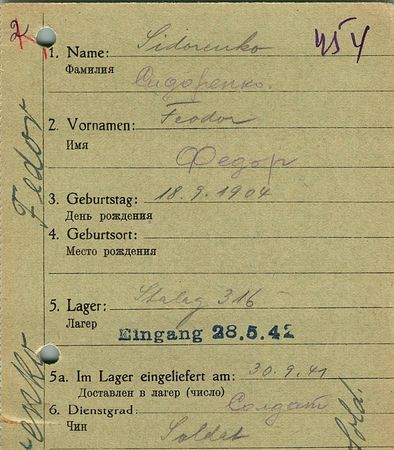 2
454
1. Name: Sidorenko
Фамилия
Сидоренко.
2. Vornamen: Feodor
Имя
Федор
3. Geburtstag: 18.9.1904
День рождения
4. Geburtsort:
Место рождения
5. Lager: Stalag 316
Лагер
Eingang 28.5.42
5a. Im Lager eingeliefert am: 30.9.41
Доставлен в лагер (число)
6. Dienstgrad: Солдат
Чин
Soldat
Fedor
enko
Sold.